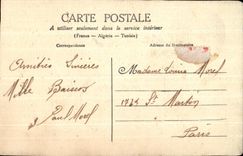 CARTE POSTALE
A utiliser seulement dans le service intérieur
(France - Algérie - Tunisie)
Correspondance
Adresse du Destinataire
Amitiés Sincères
Mille Baisers
Paul Morel
Madame Louis Morel
St Martin
Paris